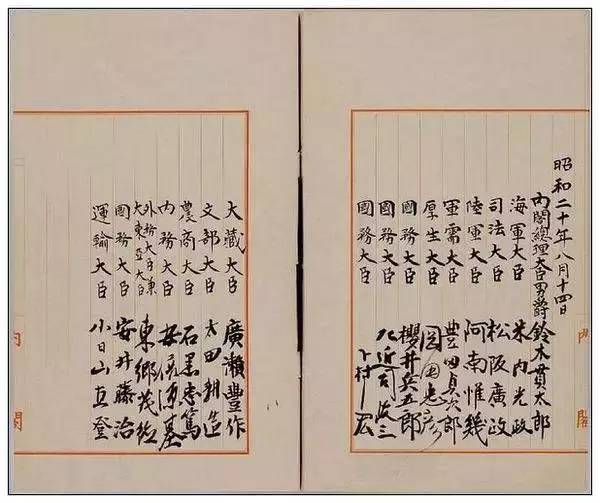 昭和二十年八月十四日
内閣總理大臣男爵 鈴木貫太郎
海軍大臣 米内光政
司法大臣 松阪廣政
陸軍大臣 阿南惟幾
軍需大臣 豊田貞次郎
厚生大臣 岡田忠彦
國務大臣 櫻井兵五郎
國務大臣 左近司政三
國務大臣 下村宏
内閣
大藏大臣 廣瀬豊作
文部大臣 太田耕造
農商大臣 石黒忠篤
内務大臣 安倍源基
外務大臣兼
大東亞大臣 東郷茂徳
國務大臣 安井藤治
運輸大臣 小日山直登
内閣